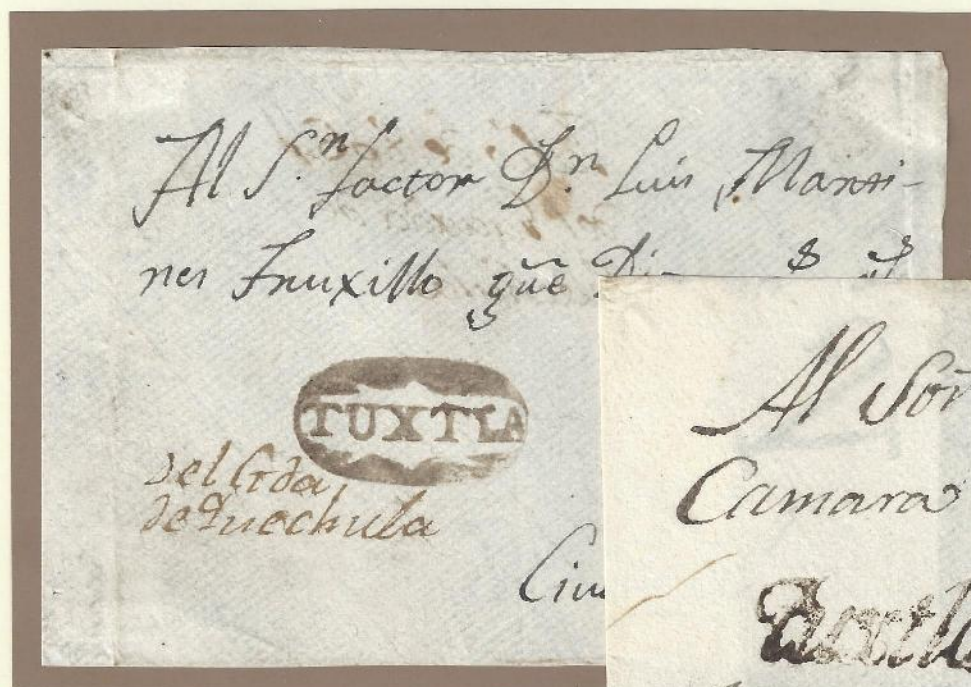 Al S.ⁿ factor D.ⁿ Luis Marti-
nes Truxillo qũe
TUXTLA
del Gda
de Quechula
Al Soñ
Camara